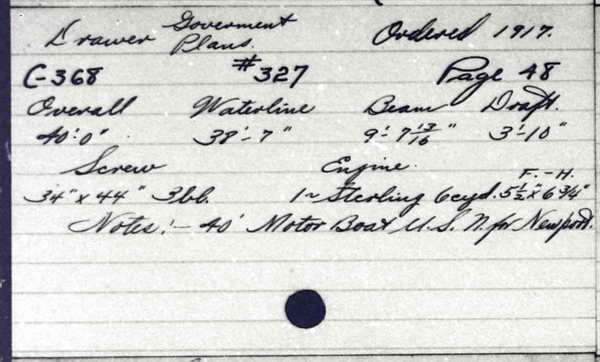 Drawer Goverment Plans. Ordered 1917.
C-368 #327 Page 48
Overall Waterline Beam Draft.
40'-0" 38'-7" 9'-7 13/16" 3'-10"
Screw Engine. F.-H.
34" x 44" 3bb. 1~ Sterling 6cyd. 5 1/2" x 6 3/4"
Notes:- 40' Motor Boat U.S.N. for Newport.